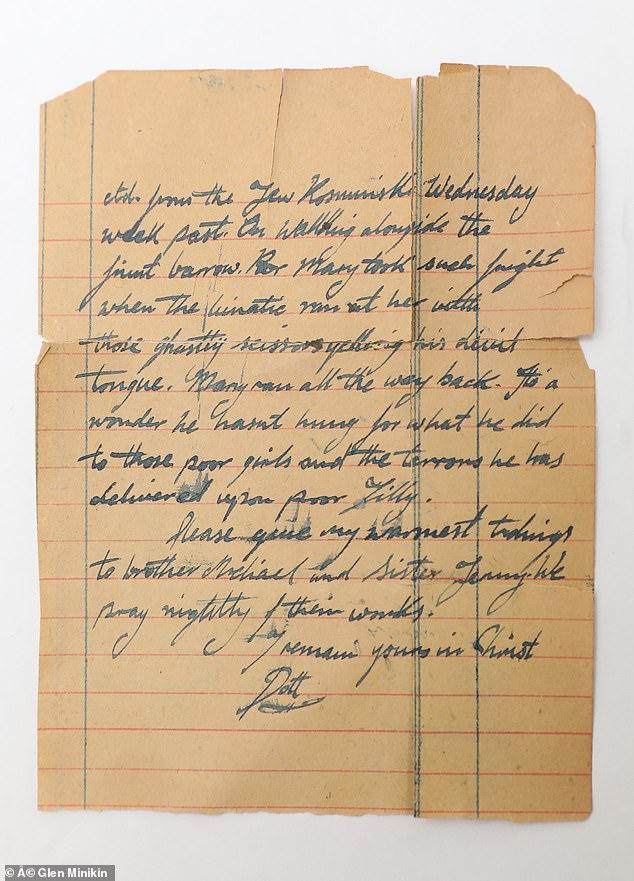 from the Jew Kosminski Wednesday
week past. On walking alongside the
fruit barrow. Mary took such fright
when the lunatic ran at her with
those ghastly scissors yelling his devil
tongue. Mary ran all the way back. Its a
wonder he hasnt hung for what he did
to those poor girls and the terrors he has
delivered upon poor Tilly.
Please give my warmest tidings
to brother Michael and sister Jenny. We
pray nightly f their works.
I remain yours in Christ
© Â© Glen Minikin